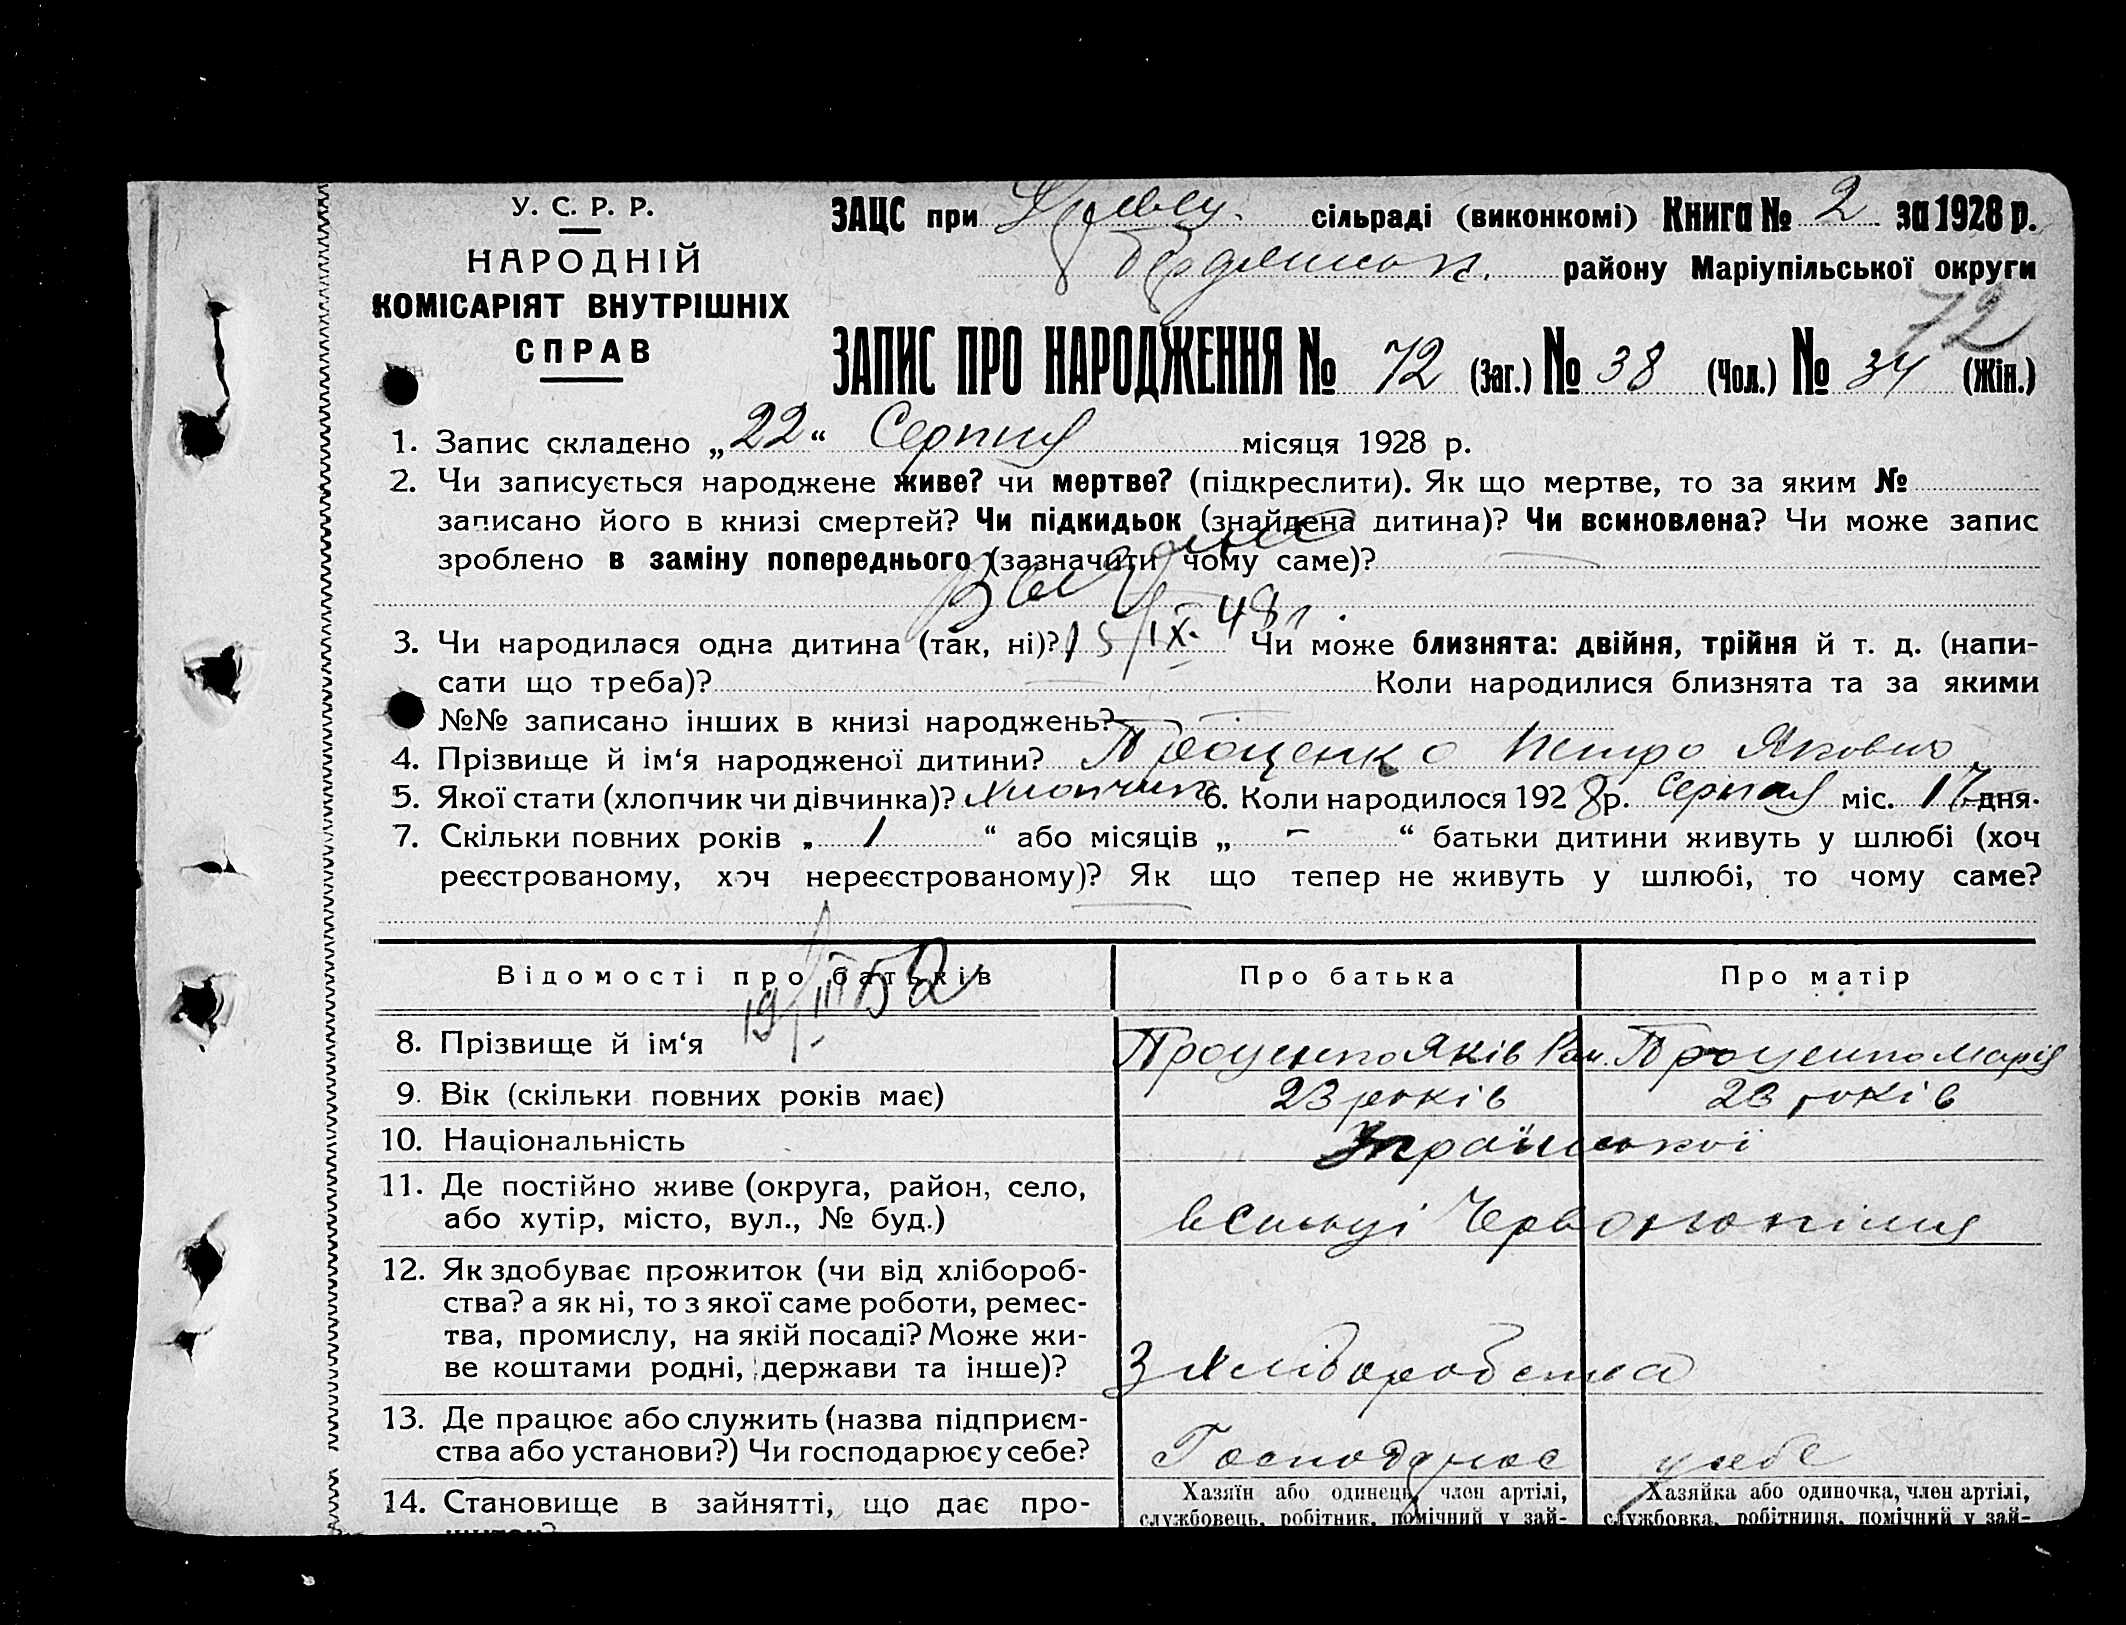 У. С. Р. Р.
НАРОДНІЙ
КОМІСАРІЯТ ВНУТРІШНІХ
СПРАВ
ЗАЦС при сільраді (виконкомі) Книга № 2 за 1928 р.
району Маріупільської округи
72
ЗАПИС ПРО НАРОДЖЕННЯ № 72 (Заг.) № 38 (Чол.) № 34 (Жін.)
1. Запис складено „22“ Серпня місяця 1928 р.
2. Чи записується народжене живе? чи мертве? (підкреслити). Як що мертве, то за яким №
записано його в книзі смертей? Чи підкидьок (знайдена дитина)? Чи всиновлена? Чи може запис
зроблено в заміну попереднього (зазначити чому саме)?
3. Чи народилася одна дитина (так, ні)? 15/IX. 48 Чи може близнята: двійня, трійня й т. д. (напи-
сати що треба)? Коли народилися близнята та за якими
№№ записано інших в книзі народжень?
4. Прізвище й ім‘я народженої дитини? Проценко Петро Якович
5. Якої стати (хлопчик чи дівчинка)? Хлопчик 6. Коли народилося 1928 р. Серпня міс. 17 дня.
7. Скільки повних років „ 1 “ або місяців „ - “ батьки дитини живуть у шлюбі (хоч
реєстрованому, хоч нереєстрованому)? Як що тепер не живуть у шлюбі, то чому саме?
Відомості про батьків Про батька Про матір
19/III
8. Прізвище й ім‘я Проценко Яків Ром. Проценко Марія
9. Вік (скільки повних років має) 23 років 23 років
10. Національність Української
11. Де постійно живе (округа, район, село,
або хутір, місто, вул., № буд.)
12. Як здобуває прожиток (чи від хлібороб-
ства? а як ні, то з якої саме роботи, ремес-
тва, промислу, на якій посаді? Може жи-
ве коштами родні, держави та інше)? З хліборобства
13. Де працює або служить (назва підприєм-
ства або установи?) Чи господарює у себе? Господарює у себе
14. Становище в зайнятті, що дає про- Хазяїн або одинець, член артілі, Хазяйка або одиночка, член артілі,
службовець, робітник, помічний у зай- службовка, робітниця, помічний у зай-